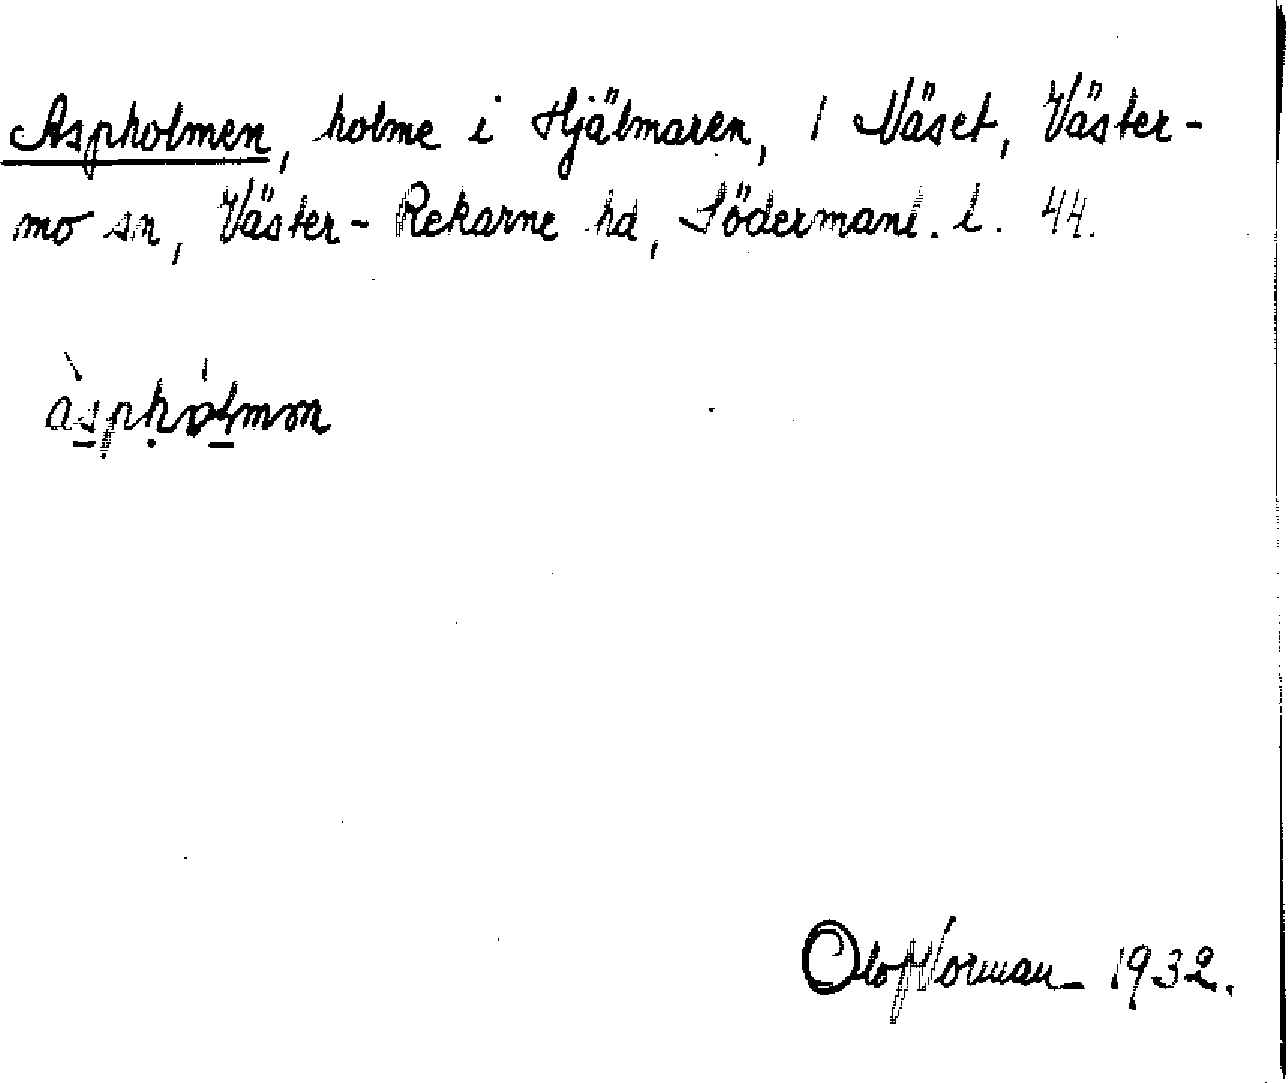 Aspholmen, holme i Hjälmaren, 1 Näset, Väster-
mo sn, Väster-Rekarne hd, Södermanl. l. 44.
àsphólmən
Olof Norman 1932.